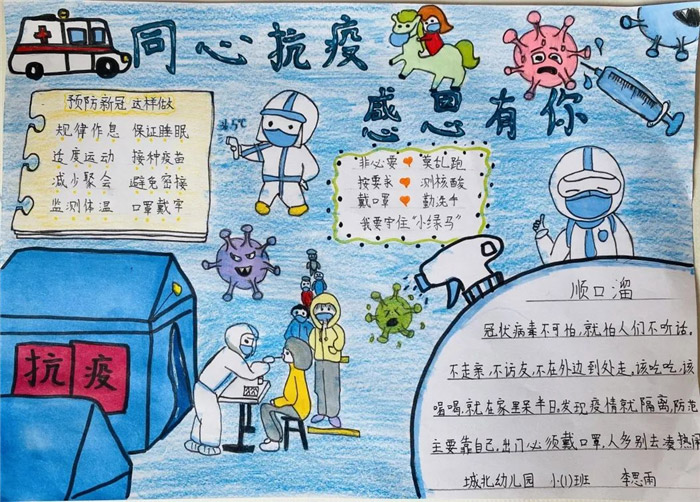 同心抗疫
感恩有你
预防新冠 这样做
规律作息 保证睡眠
适度运动 接种疫苗
减少聚会 避免密接
监测体温 口罩戴牢
36.5℃
非必要 莫乱跑
按要求 测核酸
戴口罩 勤洗手
我要守住“小绿马”
抗疫
顺口溜
冠状病毒不可怕,就怕人们不听话。
不走亲,不访友,不在外边到处走。该吃吃,该
喝喝,就在家里呆半日,发现疫情就隔离,防范
主要靠自己,出门必须戴口罩,人多别去凑热闹
城北幼儿园 小(1)班 李思雨